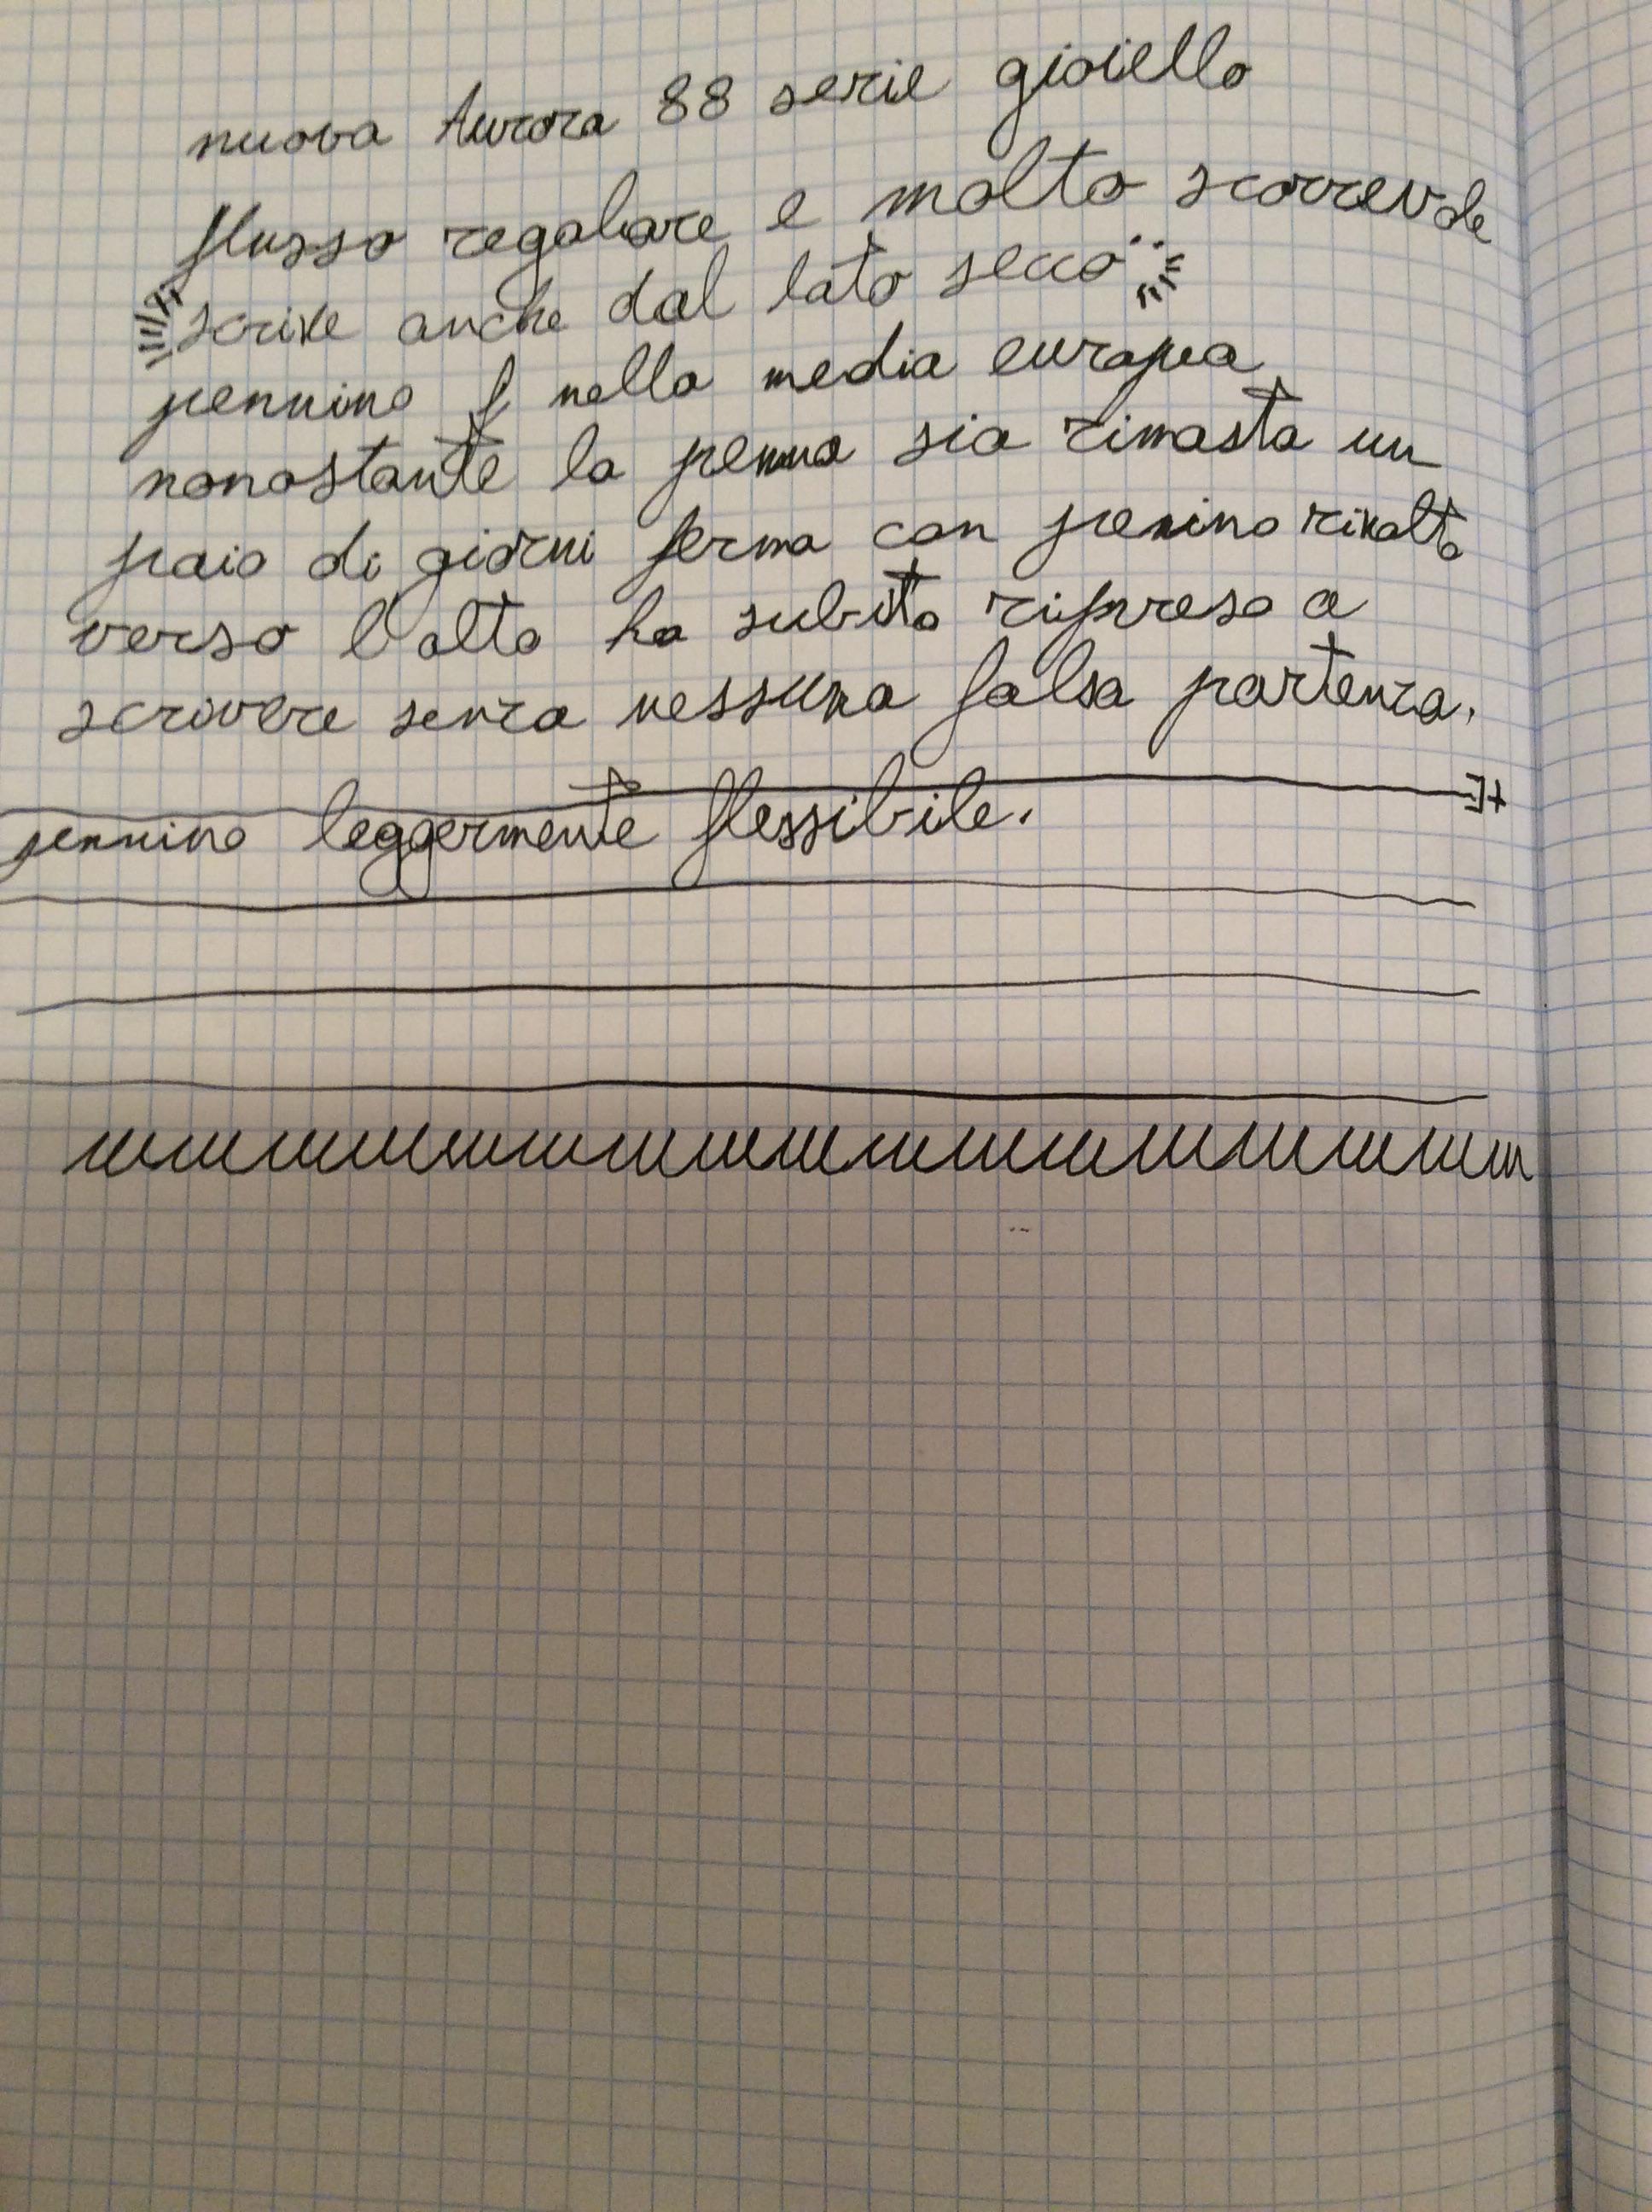 nuova Aurora 88 serie gioiello
flusso regolare e molto scorrevole
scrive anche dal lato secco
pennino f nella media europea
nonostante la penna sia rimasta un
paio di giorni ferma con penino rivolto
verso l'alto ha subito ripreso a
scrivere senza nessuna falsa partenza.
pennino leggermente flessibile.